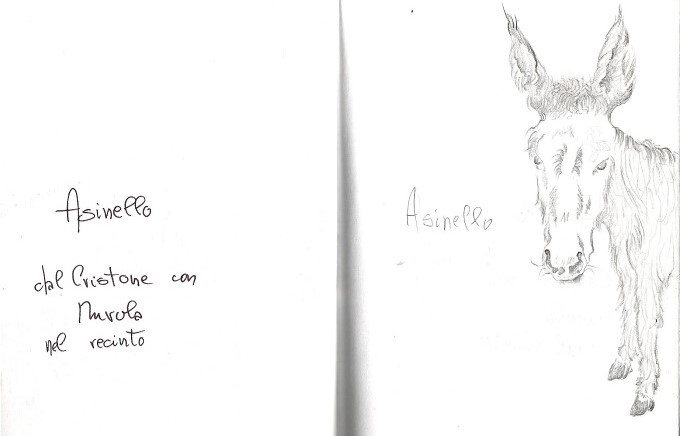 Asinello
dal Cristone con
Nuvola
nel recinto
Asinello